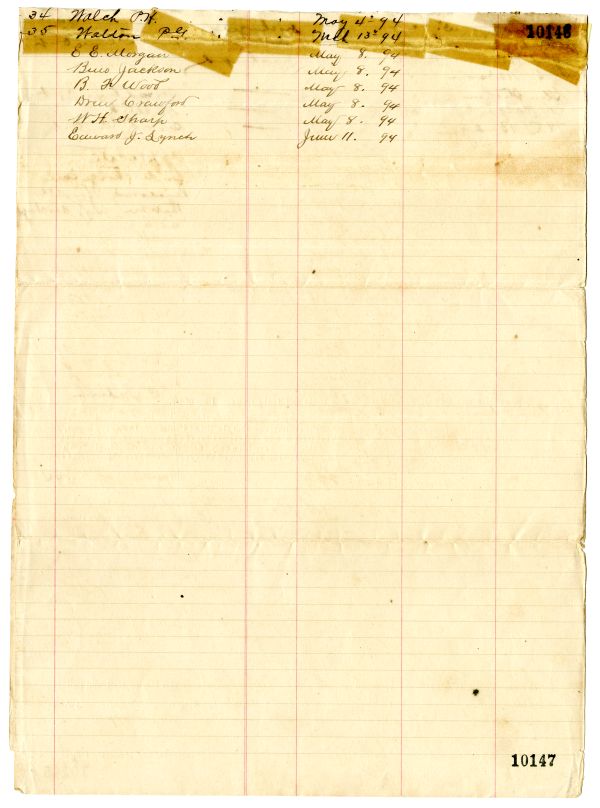 34 Walch P.H. " " May 4" 94
35 Waldon P.G. " " 13" 94
10146
E E. Morgan May 8. 94
Jackson May 8. 94
B. F Wood May 8. 94
Drew Crawford May 8. 94
W H. Sharp May 8. 94
Edward J. Lynch June 11. 94
10147